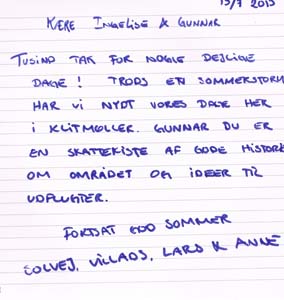 15/7 2015
KÆRE INGELISE & GUNNAR
TUSIND TAK FOR NOGLE DEJLIGE
DAGE! TRODS EN SOMMERSTORM
HAR VI NYDT VORES DAGE HER
I KLITMØLLER. GUNNAR DU ER
EN SKATTEKISTE AF GODE HISTORI
OM OMRÅDET OG IDEER TIL
UDFLUGTER.
FORTSAT GOD SOMMER
SOLVEJ, VILLADS, LARS & ANNE